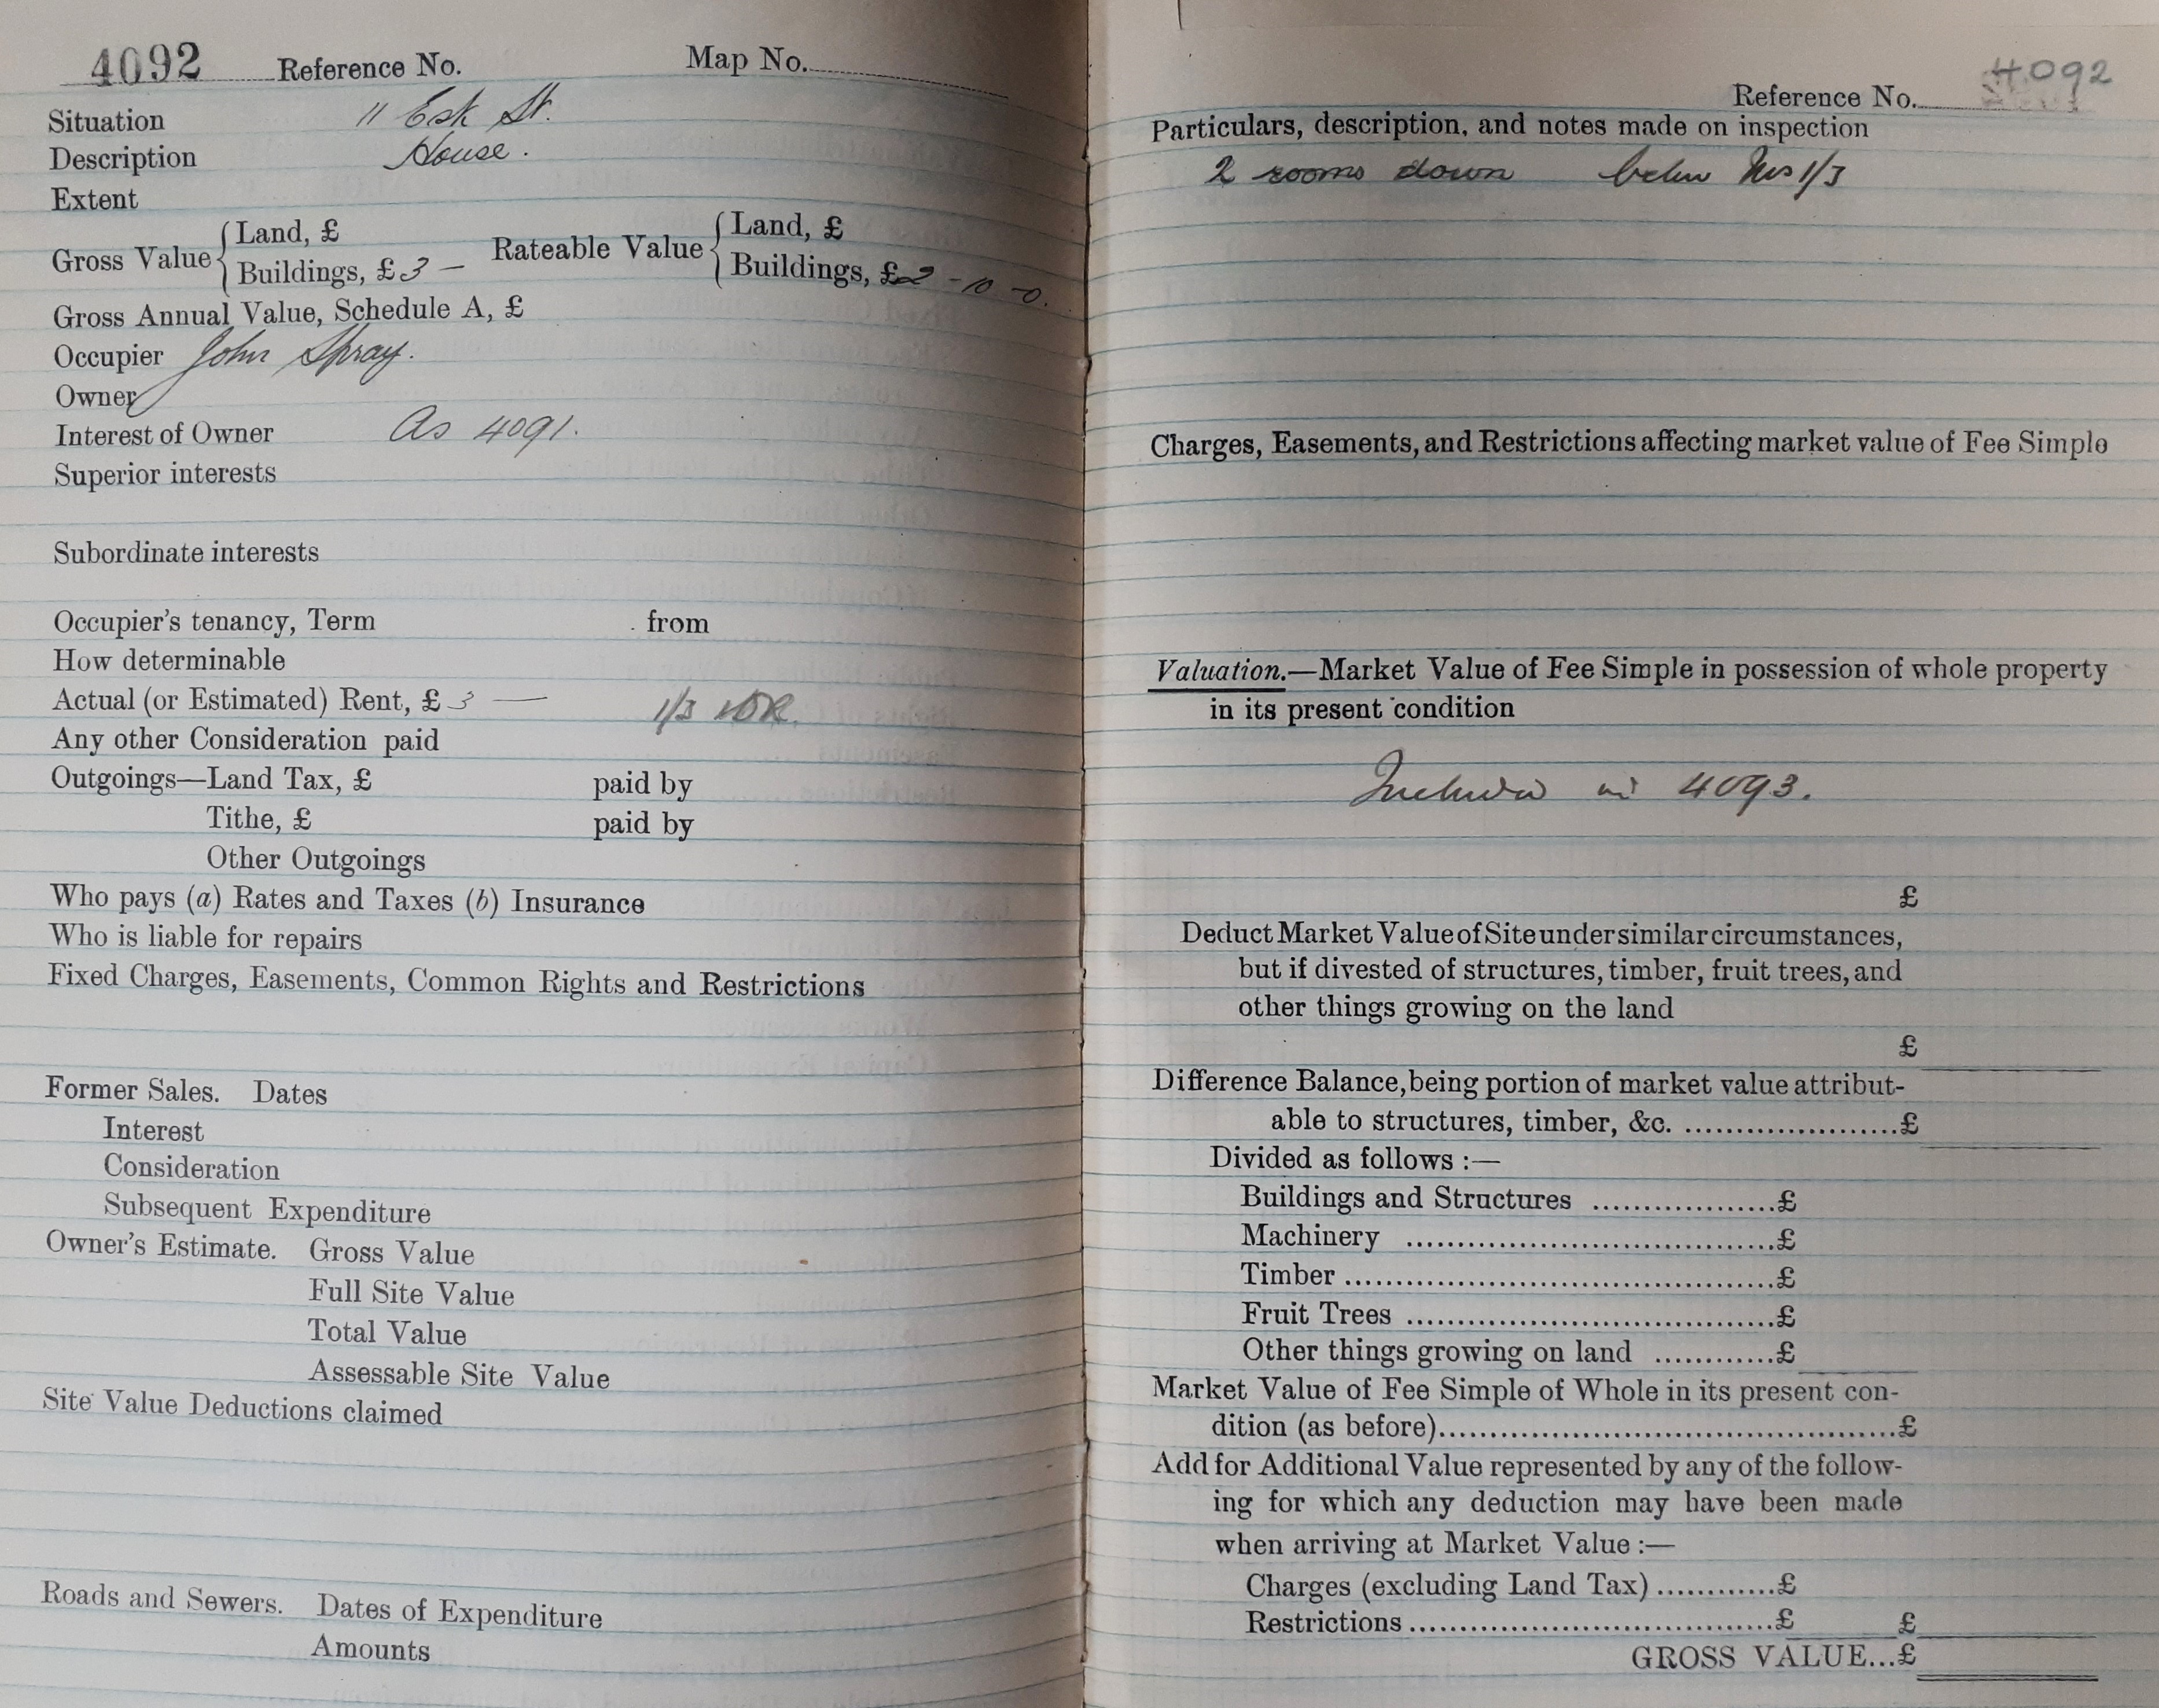 4092 Reference No. Map No.
Situation 11 Esk St.
Description House.
Extent
Gross Value { Land, £ Rateable Value { Land, £
Buildings, £ 3 — Buildings, £ 2 - 10 - 0.
Gross Annual Value, Schedule A, £
Occupier John Spray.
Owner
Interest of Owner As 4091.
Superior interests
Subordinate interests
Occupier's tenancy, Term from
How determinable
Actual (or Estimated) Rent, £ 3 — 1/3
Any other Consideration paid
Outgoings—Land Tax, £ paid by
Tithe, £ paid by
Other Outgoings
Who pays (a) Rates and Taxes (b) Insurance
Who is liable for repairs
Fixed Charges, Easements, Common Rights and Restrictions
Former Sales. Dates
Interest
Consideration
Subsequent Expenditure
Owner's Estimate. Gross Value
Full Site Value
Total Value
Assessable Site Value
Site Value Deductions claimed
Roads and Sewers. Dates of Expenditure
Amounts
Reference No. 4092
Particulars, description, and notes made on inspection
2 rooms down below Nos 1/3
Charges, Easements, and Restrictions affecting market value of Fee Simple
Valuation.—Market Value of Fee Simple in possession of whole property
in its present condition
Included in 4093.
£
Deduct Market Value of Site under similar circumstances,
but if divested of structures, timber, fruit trees, and
other things growing on the land
£
Difference Balance, being portion of market value attribut-
able to structures, timber, &c. ......................£
Divided as follows :—
Buildings and Structures ...................£
Machinery .......................................£
Timber .............................................£
Fruit Trees .......................................£
Other things growing on land ............£
Market Value of Fee Simple of Whole in its present con-
dition (as before)................................................£
Add for Additional Value represented by any of the follow-
ing for which any deduction may have been made
when arriving at Market Value :—
Charges (excluding Land Tax) ............£
Restrictions .......................................£ £
GROSS VALUE...£